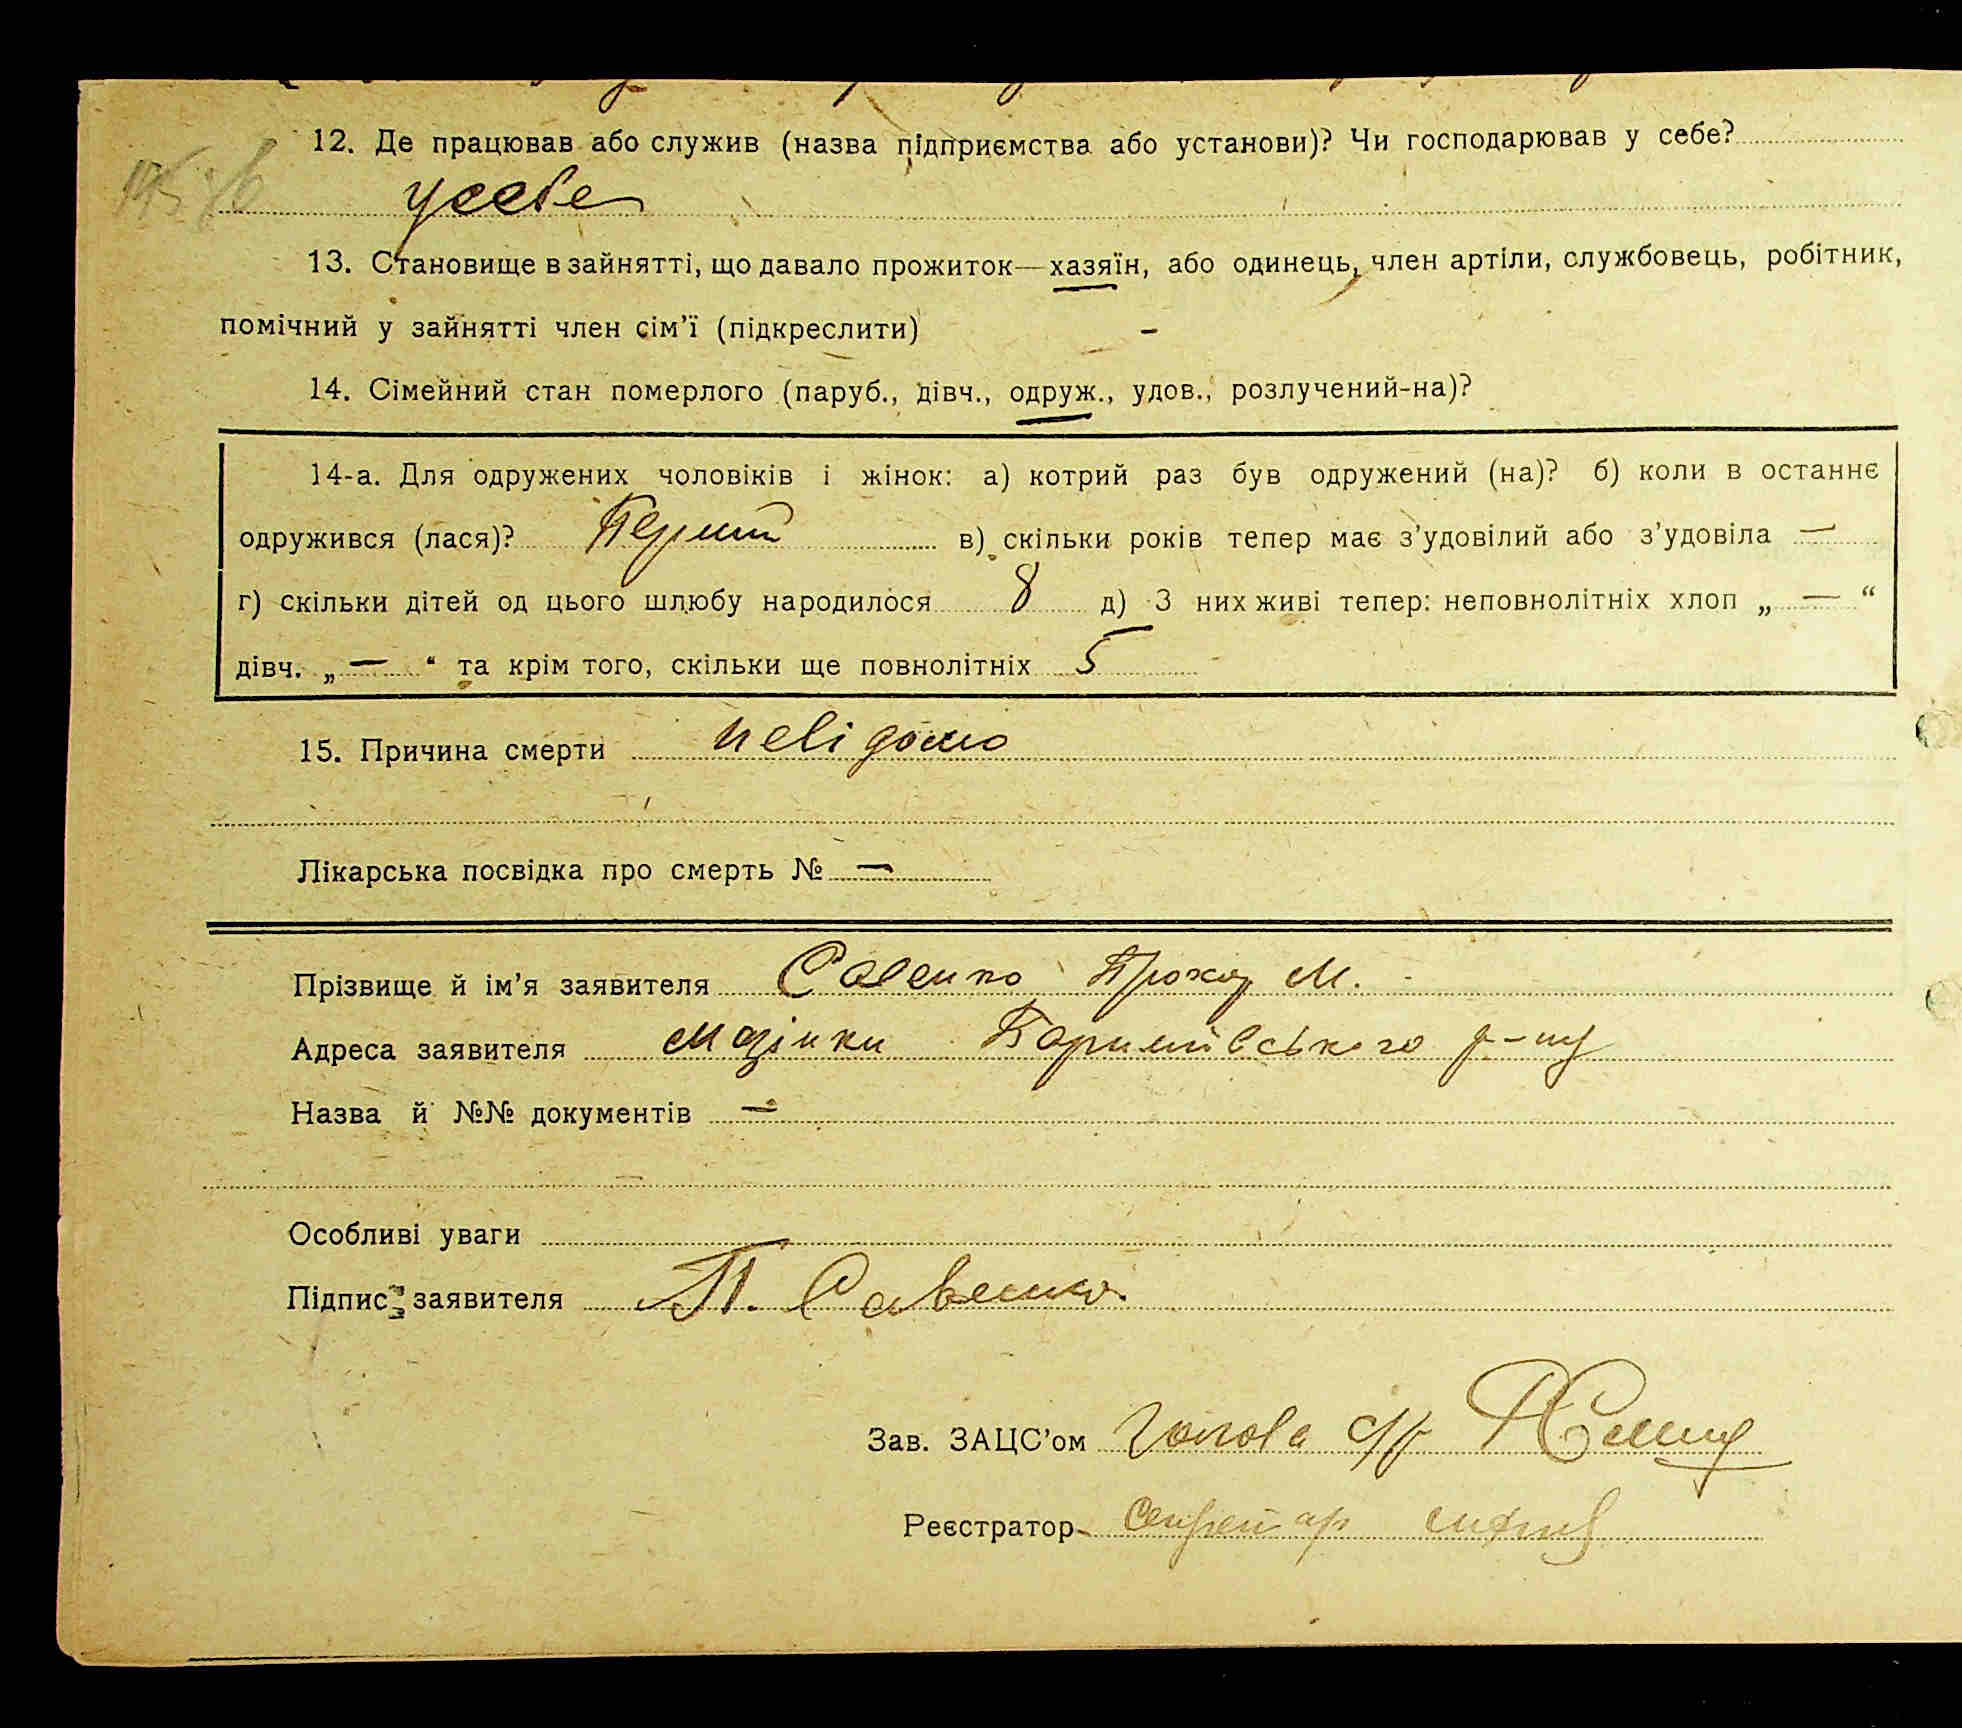 12. Де працював або служив (назва підприємства або установи)? Чи господарював у себе?
усебе
13. Становище в зайнятті, що давало прожиток—хазяїн, або одинець, член артіли, службовець, робітник,
помічний у зайнятті член сім’ї (підкреслити) -
14. Сімейний стан померлого (паруб., дівч., одруж., удов., розлучений-на)?
14-а. Для одружених чоловіків і жінок: а) котрий раз був одружений (на)? б) коли в останнє
одружився (лася)? Перший в) скільки років тепер має з’удовілий або з’удовіла —
г) скільки дітей од цього шлюбу народилося 8 д) З них живі тепер: неповнолітніх хлоп „ — “
дівч. „ — “ та крім того, скільки ще повнолітніх 5
15. Причина смерти невідомо
Лікарська посвідка про смерть № —
Прізвище й ім’я заявителя Савенко М.
Адреса заявителя Мазінки р-ну
Назва й №№ документів —
Особливі уваги
Підпис заявителя П. Савенко
Зав. ЗАЦС’ом Голова с/р
Реєстратор Секретар